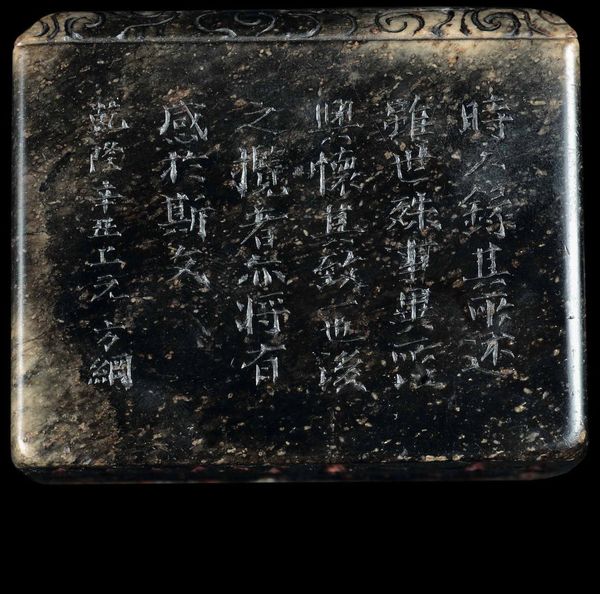 時人錄其所述
雖世殊事異所以
興懷其致一也後
之攬者亦將有
感扵斯文
乾隆辛丑上元方綱